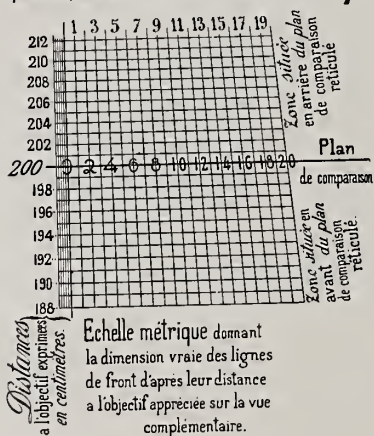 1 3 5 7 9 11 13 15 17 19
212
210
208
206
204
202
200 0 2 4 6 8 10 12 14 16 18 20
198
196
194
192
190
188
Zone située
en arrière du plan
de comparaison
réticulé
Plan
de comparaison
Zone située en
avant du plan
de comparaison
réticulé.
Distances
a l'objectif exprimées
en centimètres.
Echelle métrique donnant
la dimension vraie des lignes
de front d'après leur distance
a l'objectif appréciée sur la vue
complémentaire.